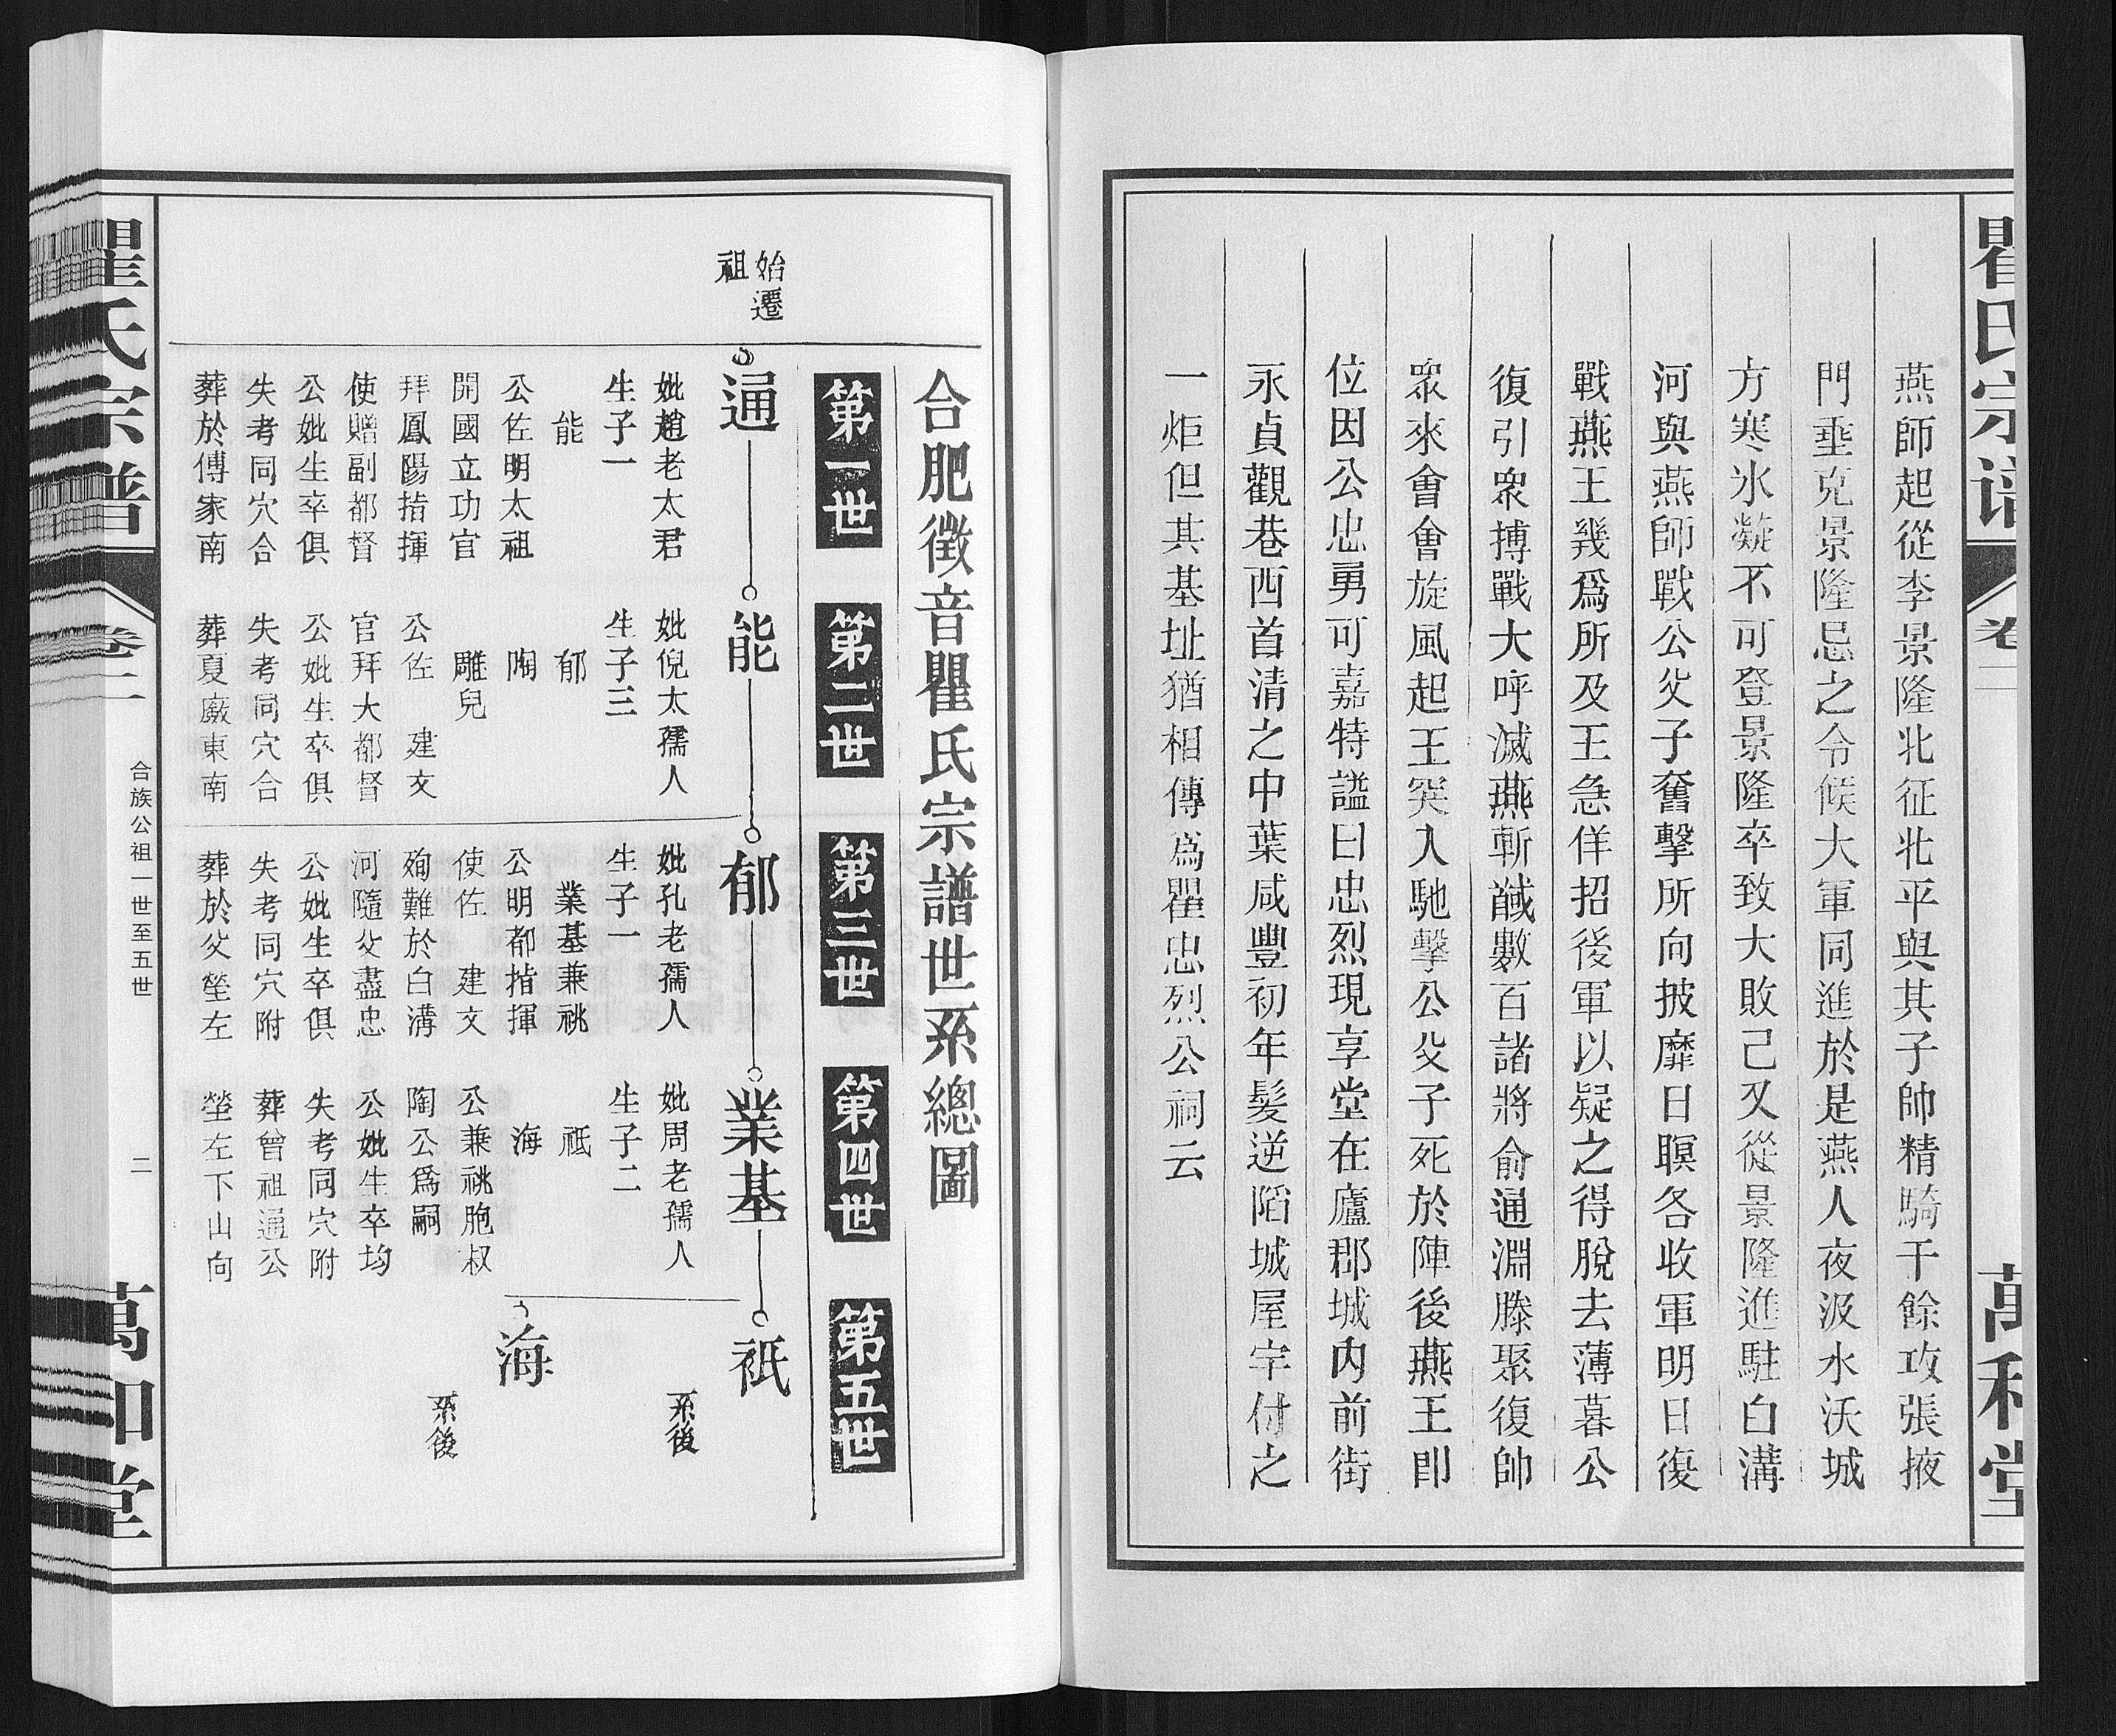 瞿氏宗譜
卷二
萬和堂
燕師起從李景隆北征北平與其子帥精騎千餘攻張掖
門垂克景隆忌之令候大軍同進於是燕人夜汲水沃城
方寒氷凝不可登景隆卒致大敗己又從景隆進駐白溝
河與燕師戰公父子奮擊所向披靡日暝各收軍明日復
戰燕王幾爲所及王急佯招後軍以疑之得脫去薄暮公
復引衆搏戰大呼滅燕斬馘數百諸將俞通淵滕聚復帥
衆來會會旋風起王突入馳擊公父子死於陣後燕王即
位因公忠勇可嘉特謚曰忠烈現享堂在廬郡城内前街
永貞觀巷西首清之中葉咸豐初年髮逆陷城屋宇付之
一炬但其基址猶相傳爲瞿忠烈公祠云
合肥徵音瞿氏宗譜世系總圖
第一世
第二世
第三世
第四世
第五世
始遷
祖
通
妣趙老太君
生子一
能
公佐明太祖
開國立功官
拜鳳陽指揮
使贈副都督
公妣生卒俱
失考同穴合
葬於傅家南
能
妣倪太孺人
生子三
郁
陶
雕兒
公佐 建文
官拜大都督
公妣生卒俱
失考同穴合
葬夏廠東南
郁
妣孔老孺人
生子一
業基兼祧
公明都指揮
使佐 建文
殉難於白溝
河隨父盡忠
公妣生卒俱
失考同穴附
葬於父塋左
業基
妣周老孺人
生子二
祗
海
公兼祧胞叔
陶公爲嗣
公妣生卒均
失考同穴附
葬曾祖通公
塋左下山向
祇
系後
海
系後
瞿氏宗譜
卷二
合族公祖一世至五世
二
萬和堂